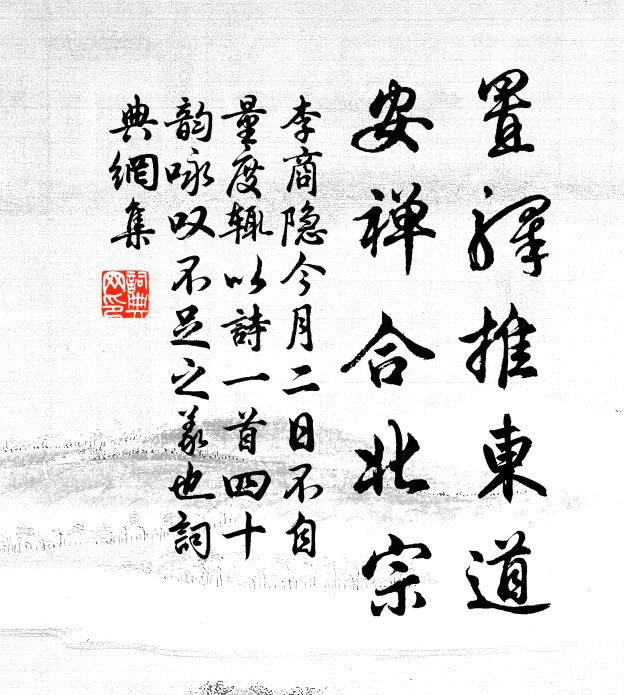 置驛推東道
安禅合北宗
李商隐今月二日不自
量度辄以詩一首四十
韵咏叹不足之義也詞
典網集
詞典
网印